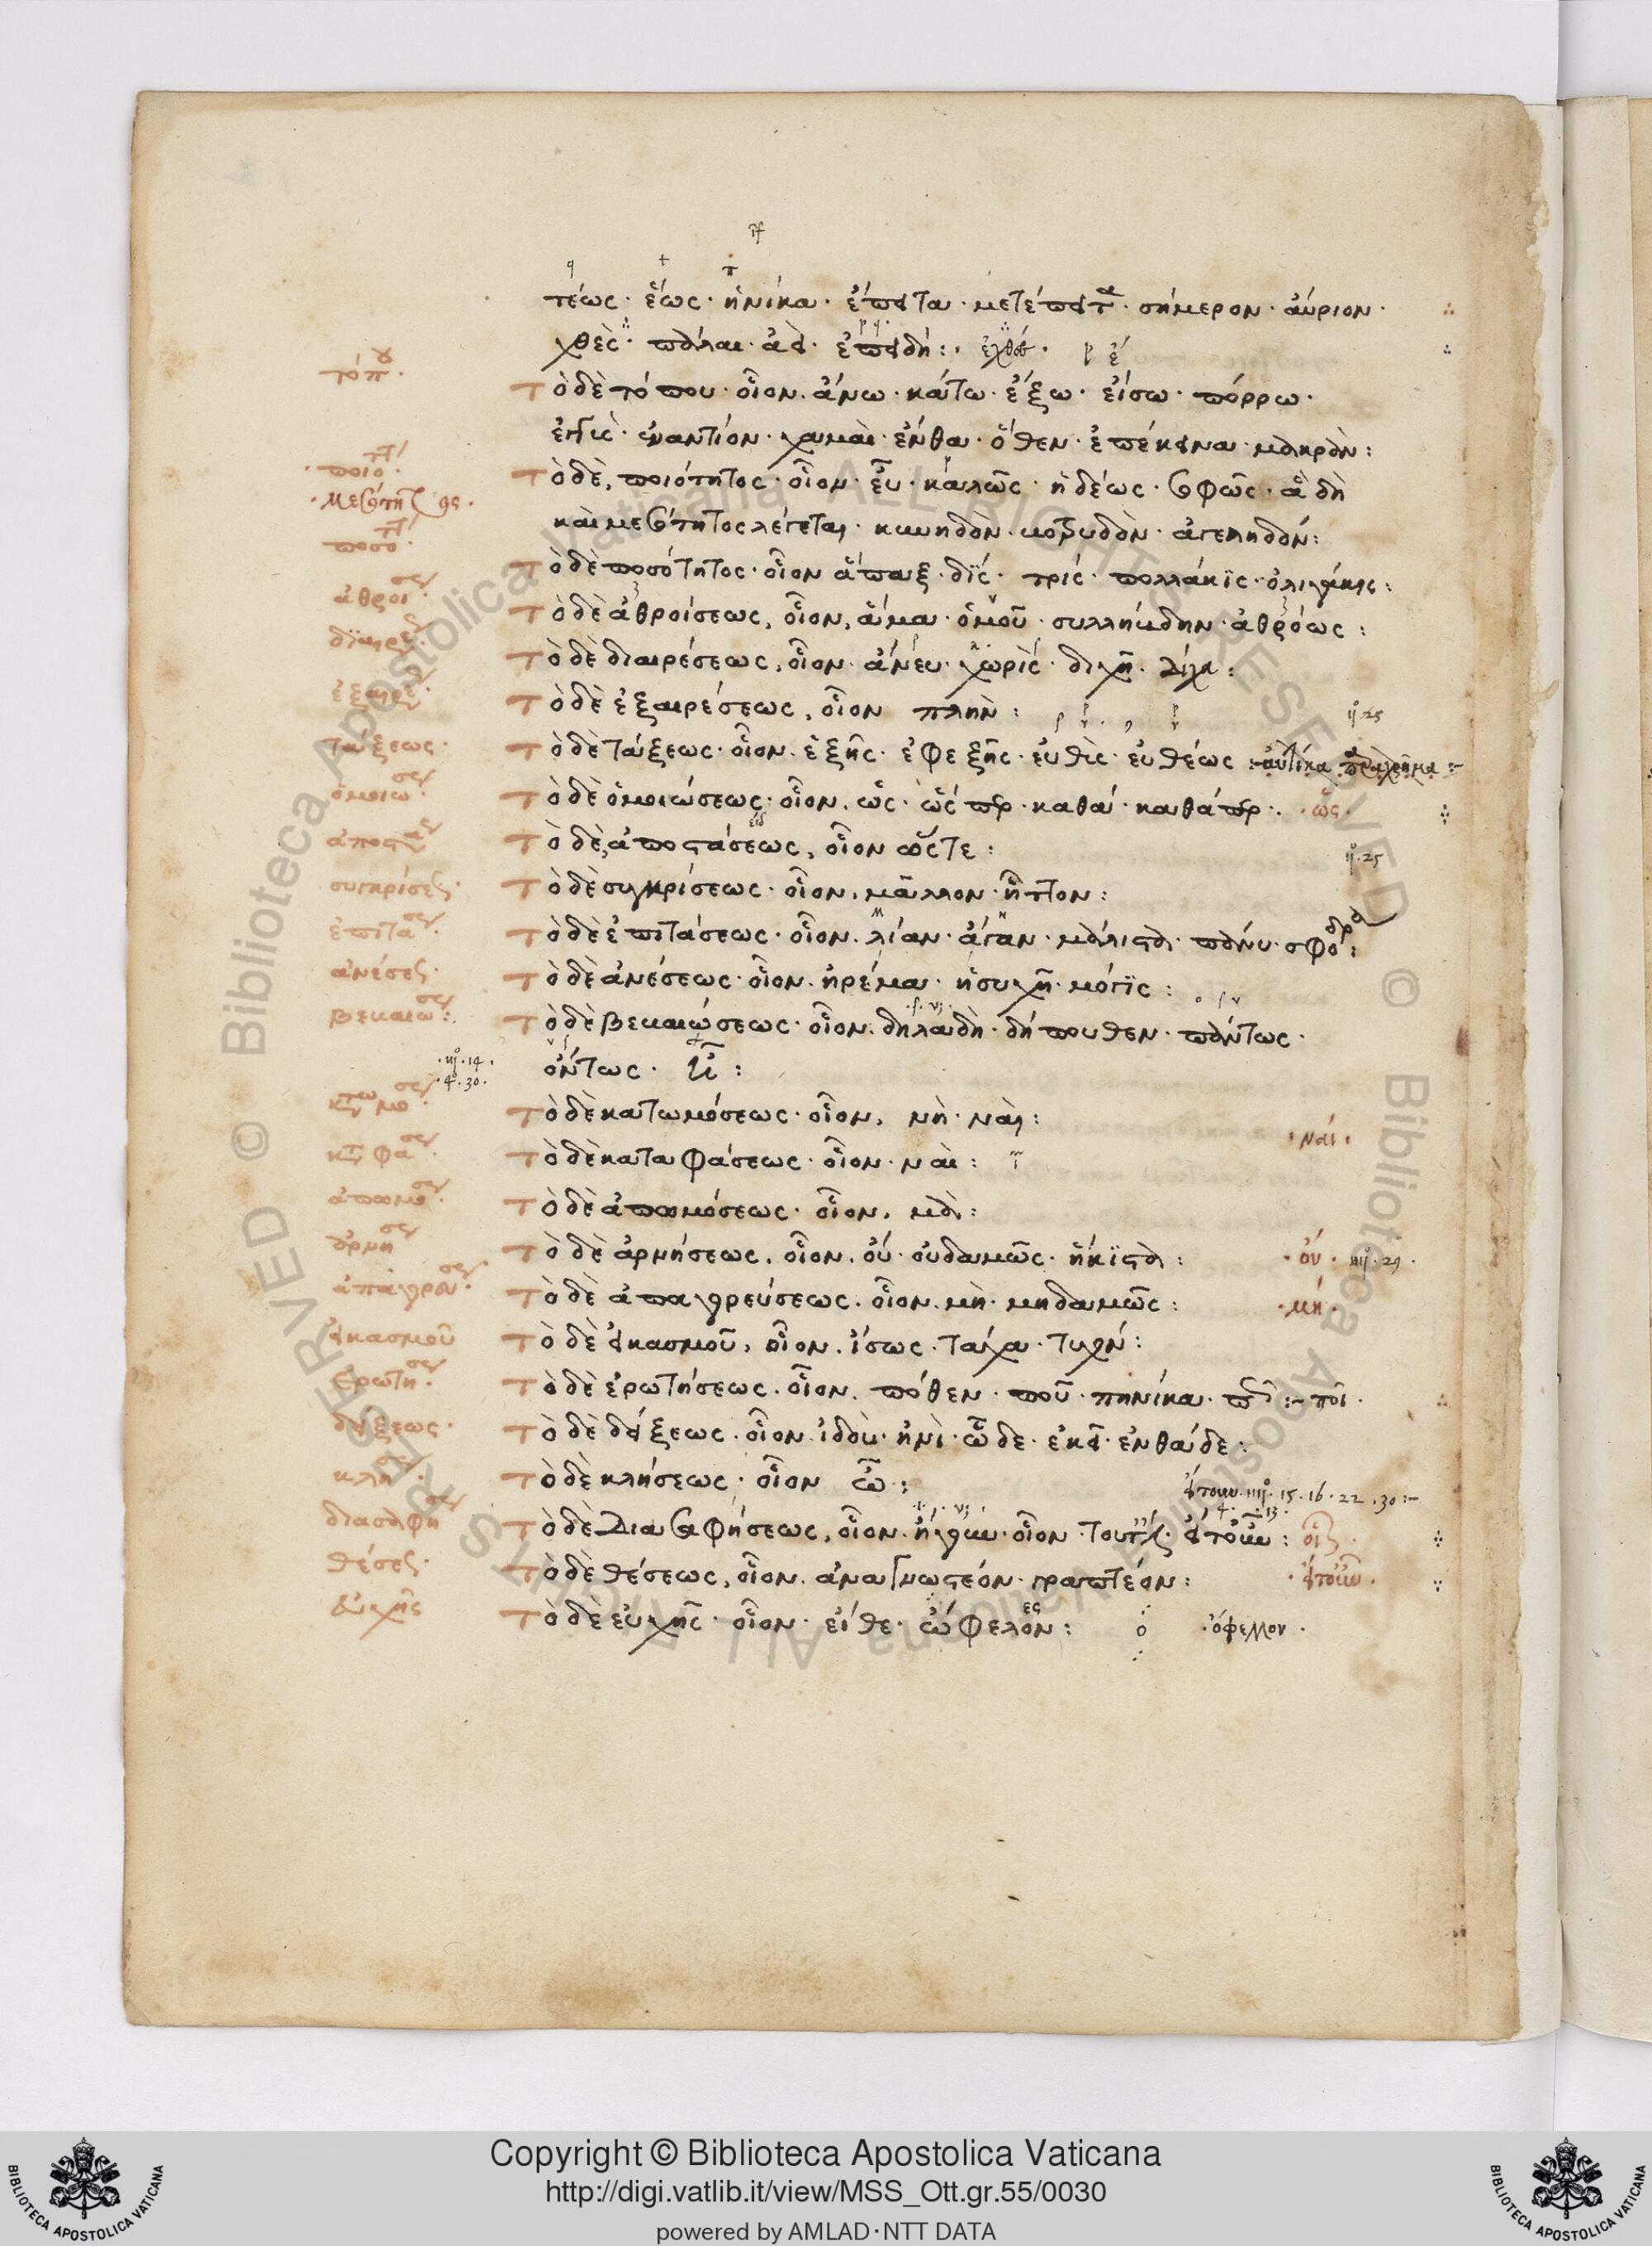 τέως · ἕως · ἡνίκα · ἔπειτα · μετέπειτα · σήμερον · αύριον ·
χθὲς · πάλαι · ἀεὶ · ἐπειδή : · ἐχθὲς ·
τόπου ·
Τὸ δὲ τόπου · οἷον · ἄνω · κάτω · ἔξω · εἴσω · πόρρω ·
ἐγγὺς · ἐναντίον · χαμαὶ · ἔνθα · ὅθεν · ἐπέκεινα · μακρὰν :
ποιότητος ·
Τὸ δὲ, ποιότητος · οἷον · εὖ · καλῶς · ἡδέως · σαφῶς · ἃ δὴ
· μεσότητος ·
καὶ μεσότητος λέγεται · κυνηδὸν · βοτρυδὸν · ἀγεληδόν :
ποσότητος ·
Τὸ δὲ ποσότητος · οἷον ἅπαξ · δίς · τρίς · πολλάκις · ὀλιγάκις :
ἀθροίσεως ·
Τὸ δὲ ἀθροίσεως, οἷον, ἅμα · ὁμοῦ · συλλήβδην · ἀθρόως :
διαιρέσεως
Τὸ δὲ διαιρέσεως, οἷον · ἄνευ · χωρὶς · διχῆ · δίχα :
ἐξαιρέσεως ·
Τὸ δὲ ἐξαιρέσεως, οἷον πλὴν :
τάξεως ·
Τὸ δὲ τάξεως · οἷον · ἑξῆς · ἐφεξῆς · εὐθὺς · εὐθέως : αὐτίκα παραχρῆμα :-
ὁμοιώσεως ·
Τὸ δὲ ὁμοιώσεως · οἷον · ὡς · ὥσπερ · καθὰ · καθάπερ · · ὡς ·
ἀποστάσεως
Τὸ δὲ, ἀποστάσεως, οἷον ὥστε :
συγκρίσεως ·
Τὸ δὲ συγκρίσεως · οἷον, μᾶλλον · ἧττον :
ἐπιτάσεως ·
Τὸ δὲ ἐπιτάσεως · οἷον · λίαν · ἄγαν · μάλιστα · πάνυ · σφόδρα :
ἀνέσεως ·
Τὸ δὲ ἀνέσεως · οἷον · ἠρέμα · ἡσυχῆ · μόγις :
βεβαιώσεως :
Τὸ δὲ βεβαιώσεως · οἷον · δηλαδὴ · δήπουθεν · πάντως ·
ὄντως ·
· 14 ·
· 4º · 30 ·
κατωμόσεως ·
Τὸ δὲ κατωμόσεως · οἷον, νὴ · ναὶ :
· ναί ·
καταφάσεως ·
Τὸ δὲ καταφάσεως · οἷον · ναὶ :
ἀπωμόσεως ·
Τὸ δὲ ἀπωμόσεως · οἷον, μὰ :
ἀρνήσεως
Τὸ δὲ ἀρνήσεως, οἷον · οὐ · οὐδαμῶς · ἥκιστα : · οὐ ·
ἀπαγορεύσεως ·
Τὸ δὲ ἀπαγορεύσεως · οἷον · μὴ · μηδαμῶς : · μή ·
εἰκασμοῦ
Τὸ δὲ εἰκασμοῦ, οἷον · ἴσως · τάχα · τυχόν :
ἐρωτήσεως ·
Τὸ δὲ ἐρωτήσεως · οἷον · πόθεν · ποῦ · πηνίκα · πῶς :- ποῖ ·
δείξεως ·
Τὸ δὲ δείξεως · οἷον · ἰδοὺ · ἠνὶ · ὧδε · ἐκεῖ · ἐνθάδε :
κλήσεως ·
Τὸ δὲ κλήσεως · οἷον ὦ :
15 · 16 · 22 · 30 :-
διασαφήσεως
Τὸ δὲ διασαφήσεως, οἷον · ἤγουν · οἷον · τουτέστιν · εἴτουν :
θέσεως ·
Τὸ δὲ θέσεως, οἷον · ἀναγνωστέον · γραπτέον : · εἴτουν ·
εὐχῆς
Τὸ δὲ εὐχῆς · οἷον · εἴθε · ὤφελον : · ὄφελλον ·
Copyright © Biblioteca Apostolica Vaticana
http://digi.vatlib.it/view/MSS_Ott.gr.55/0030
powered by AMLAD · NTT DATA
BIBLIOTECA APOSTOLICA VATICANA
BIBLIOTECA APOSTOLICA VATICANA